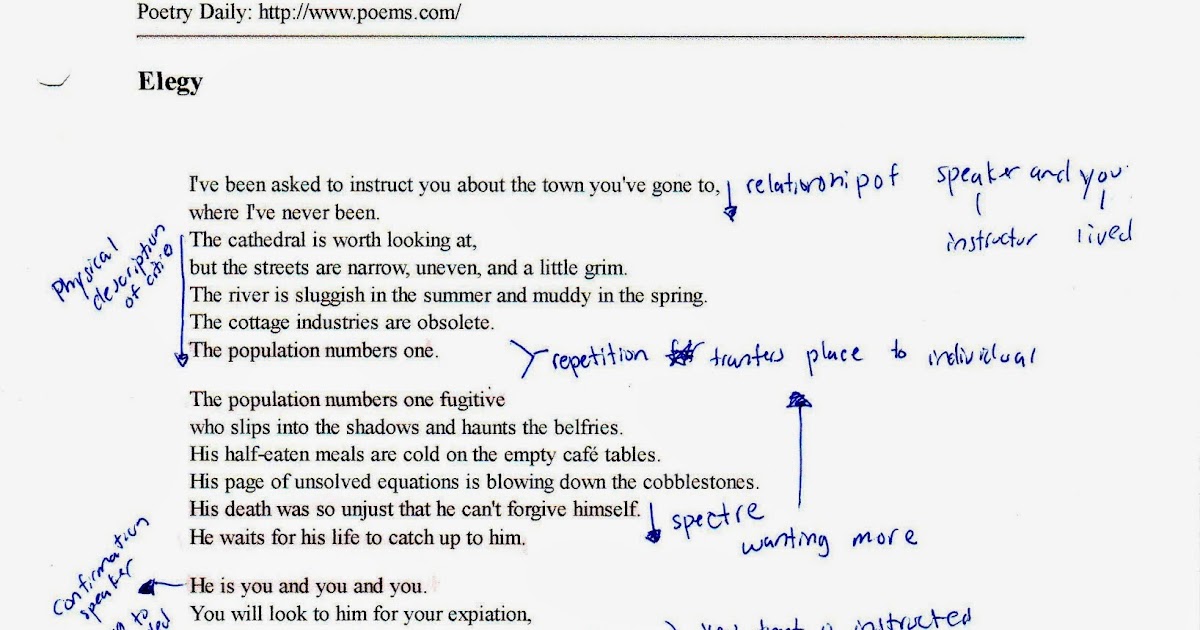 Poetry Daily: http://www.poems.com/
Elegy
I've been asked to instruct you about the town you've gone to,
relationship of speaker and you
where I've never been.
instructor lived
The cathedral is worth looking at,
physical
description
of citie
but the streets are narrow, uneven, and a little grim.
The river is sluggish in the summer and muddy in the spring.
The cottage industries are obsolete.
The population numbers one.
repetition tranfers place to individual
The population numbers one fugitive
who slips into the shadows and haunts the belfries.
His half-eaten meals are cold on the empty café tables.
His page of unsolved equations is blowing down the cobblestones.
His death was so unjust that he can't forgive himself.
spectre
wanting more
He waits for his life to catch up to him.
confirmation
speaker
to
He is you and you and you.
You will look to him for your expiation,
instructed